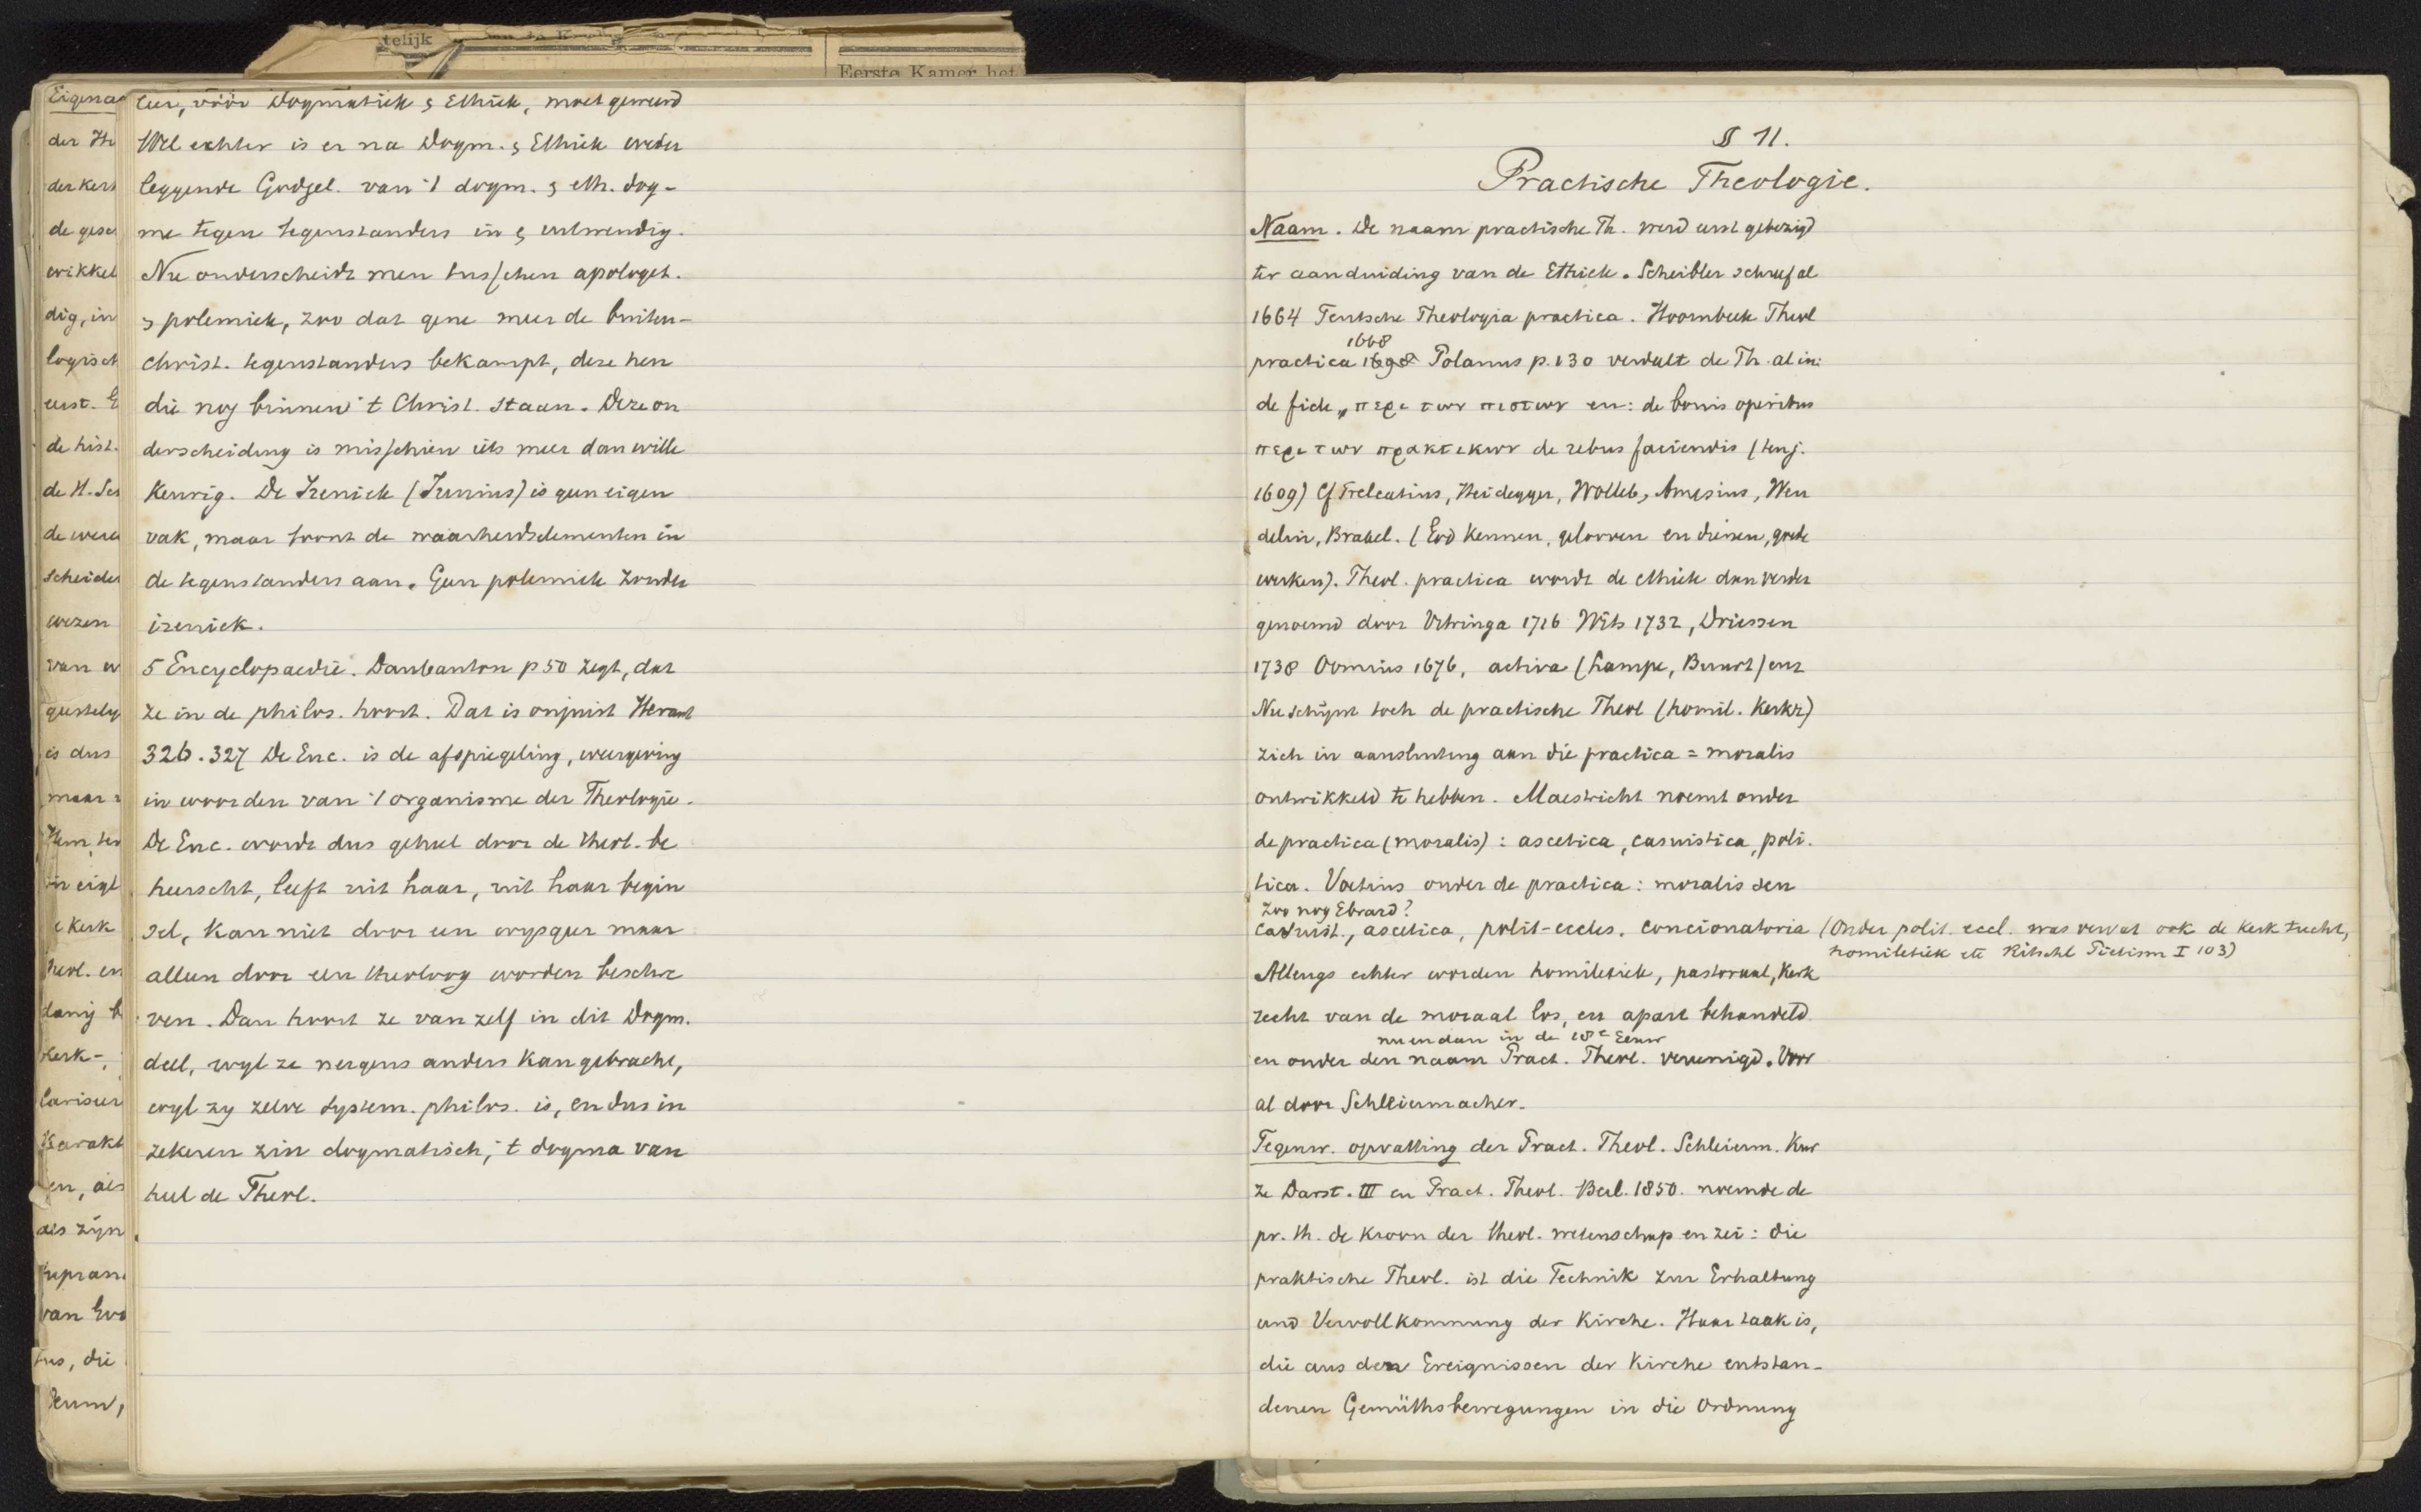 telijk
Eerste Kamer het
Eigena
der He
der kers
de gesch
wikkel
dig, in
logisch
eerst. E
de hist.
de H. Sch
de were
scheide
wezen
van w
geestely
is dus
maar
Hem, ter
in eigl
e Kerk
heol. en
danig b
Kerk-,
lariseer
Karakt
en, als
als zijn
van Eva
tus, die
Deum,
leer, vóór Dogmatiek & Ethiek, moet geweerd
Wel echter is er na Dogm. & Ethiek weder
leggende Godgel. van 't dogm. & eth. dog-
me tegen tegenstanders in & uitwendig.
Nu onderscheidt men tusschen apologet.
& polemiek, zoo dat gene meer de buiten-
christ. tegenstanders bekampt, deze hen
die nog binnen 't Christ. staan. Deze on
derscheiding is misschien iets meer dan wille
keurig. De Irenick (Junius) is geen eigen
vak, maar toont de waarheidselementen in
de tegenstanders aan. Geen polemiek zonder
irenick.
5 Encyclopaedie. Daubanton p 50 zegt, dat
ze in de philos. hoort. Dat is onjuist Heraut
326. 327 De Enc. is de afspiegeling, weergeving
in woorden van 't organisme der Theologie.
De Enc. wordt dus geheel door de theol. be
heerscht, leeft uit haar, uit haar begin
sel, kan niet door een wysgeer maar
alleen door een theoloog worden beschre
ven. Dan hoort ze van zelf in dit Dogm.
deel, wyl ze nergens anders kan gebracht,
wyl zy zelve system. philos. is, en dus in
zekeren zin dogmatisch, 't dogma van
heel de Theol.
§ 11.
Practische Theologie.
Naam. De naam practische Th. werd eerst gebezigd
ter aanduiding van de Ethiek. Scheibler schreef al
1664 Teutsche Theologia practica. Hoornbeek Theol
1668
practica 1698 Polanus p. 130 verdeelt de Th. al in:
de fide, περι των πιστων en: de bonis operibus
περι των πρακτικων de rebus faciendis (tenj.
1609) Cf Trelcatius, Heidegger, Wolleb, Amesius, Wen
delin, Brakel. (God kennen, gelooven en dienen, goede
werken). Theol. practica wordt de ethiek dan verder
genoemd door Vitringa 1716 Wits 1732, Driessen
1738 Oomius 1676, activa (Lampe, Buurt) enz
Nu schijnt toch de practische Theol (homil. Kerkr)
zich in aansluiting aan die practica = moralis
ontwikkeld te hebben. Maestricht noemt onder
de practica (moralis): ascetica, casuistica, poli.
tica. Voetius onder de practica: moralis sen
Zoo nog Ebrard?
casuist., ascetica, polit-eccles. concionatoria (Onder polit. eccl. was vervat ook de kerk tucht,
homiletiek etc Ritschl Pietism I 103)
Allengs echter worden homiletiek, pastoraal, Kerk
recht van de moraal los, en apart behandeld
nu en dan in de 18e Eeuw
en onder den naam Pract. Theol. vereenigd. Voor
al door Schleiermacher.
Tegenw. opvatting der Pract. Theol. Schleierm. Kur
ze Darst. III en Pract. Theol. Berl. 1850. noemde de
pr. th. de kroon der theol. wetenschap en zei: die
praktische Theol. ist die Technik zur Erhaltung
und Vervollkommnung der Kirche. Haar taak is,
die aus den Ereignissen der Kirche entstan-
denen Gemüthsbewegungen in die Ordnung